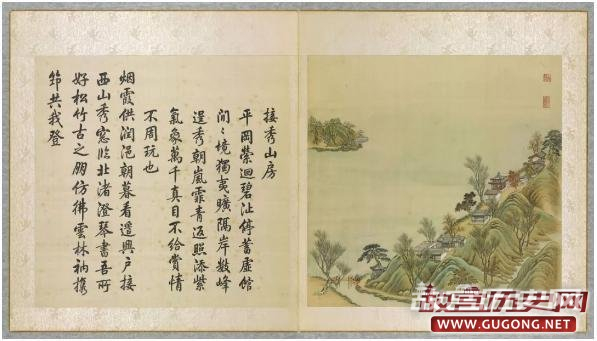 接秀山房
平岡縈迴碧沚停蓄虛館
閒〻境獨夷曠隔岸數峰
逞秀朝嵐霏青返照添紫
氣象萬千真目不給賞情
不周玩也
烟霞供潤浥朝暮看遙興戶接
西山秀窓臨北渚澄琴書吾所
好松竹古之朋仿彿雲林衲攜
筇共我登
故宫历史网
WWW.GUGONG.NET